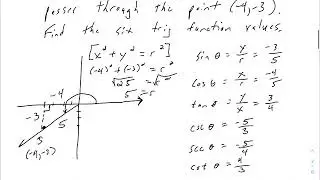 passes through the point (-4,-3).
Find the six trig function values.
[x² + y² = r²]
(-4)² + (-3)² = r²
√25 = √r²
5 = r
-4
-3
5
5
(-4,-3)
sin θ = y/r = -3/5
cos θ = x/r = -4/5
tan θ = y/x = 3/4
csc θ = -5/3
sec θ = -5/4
cot θ = 4/3